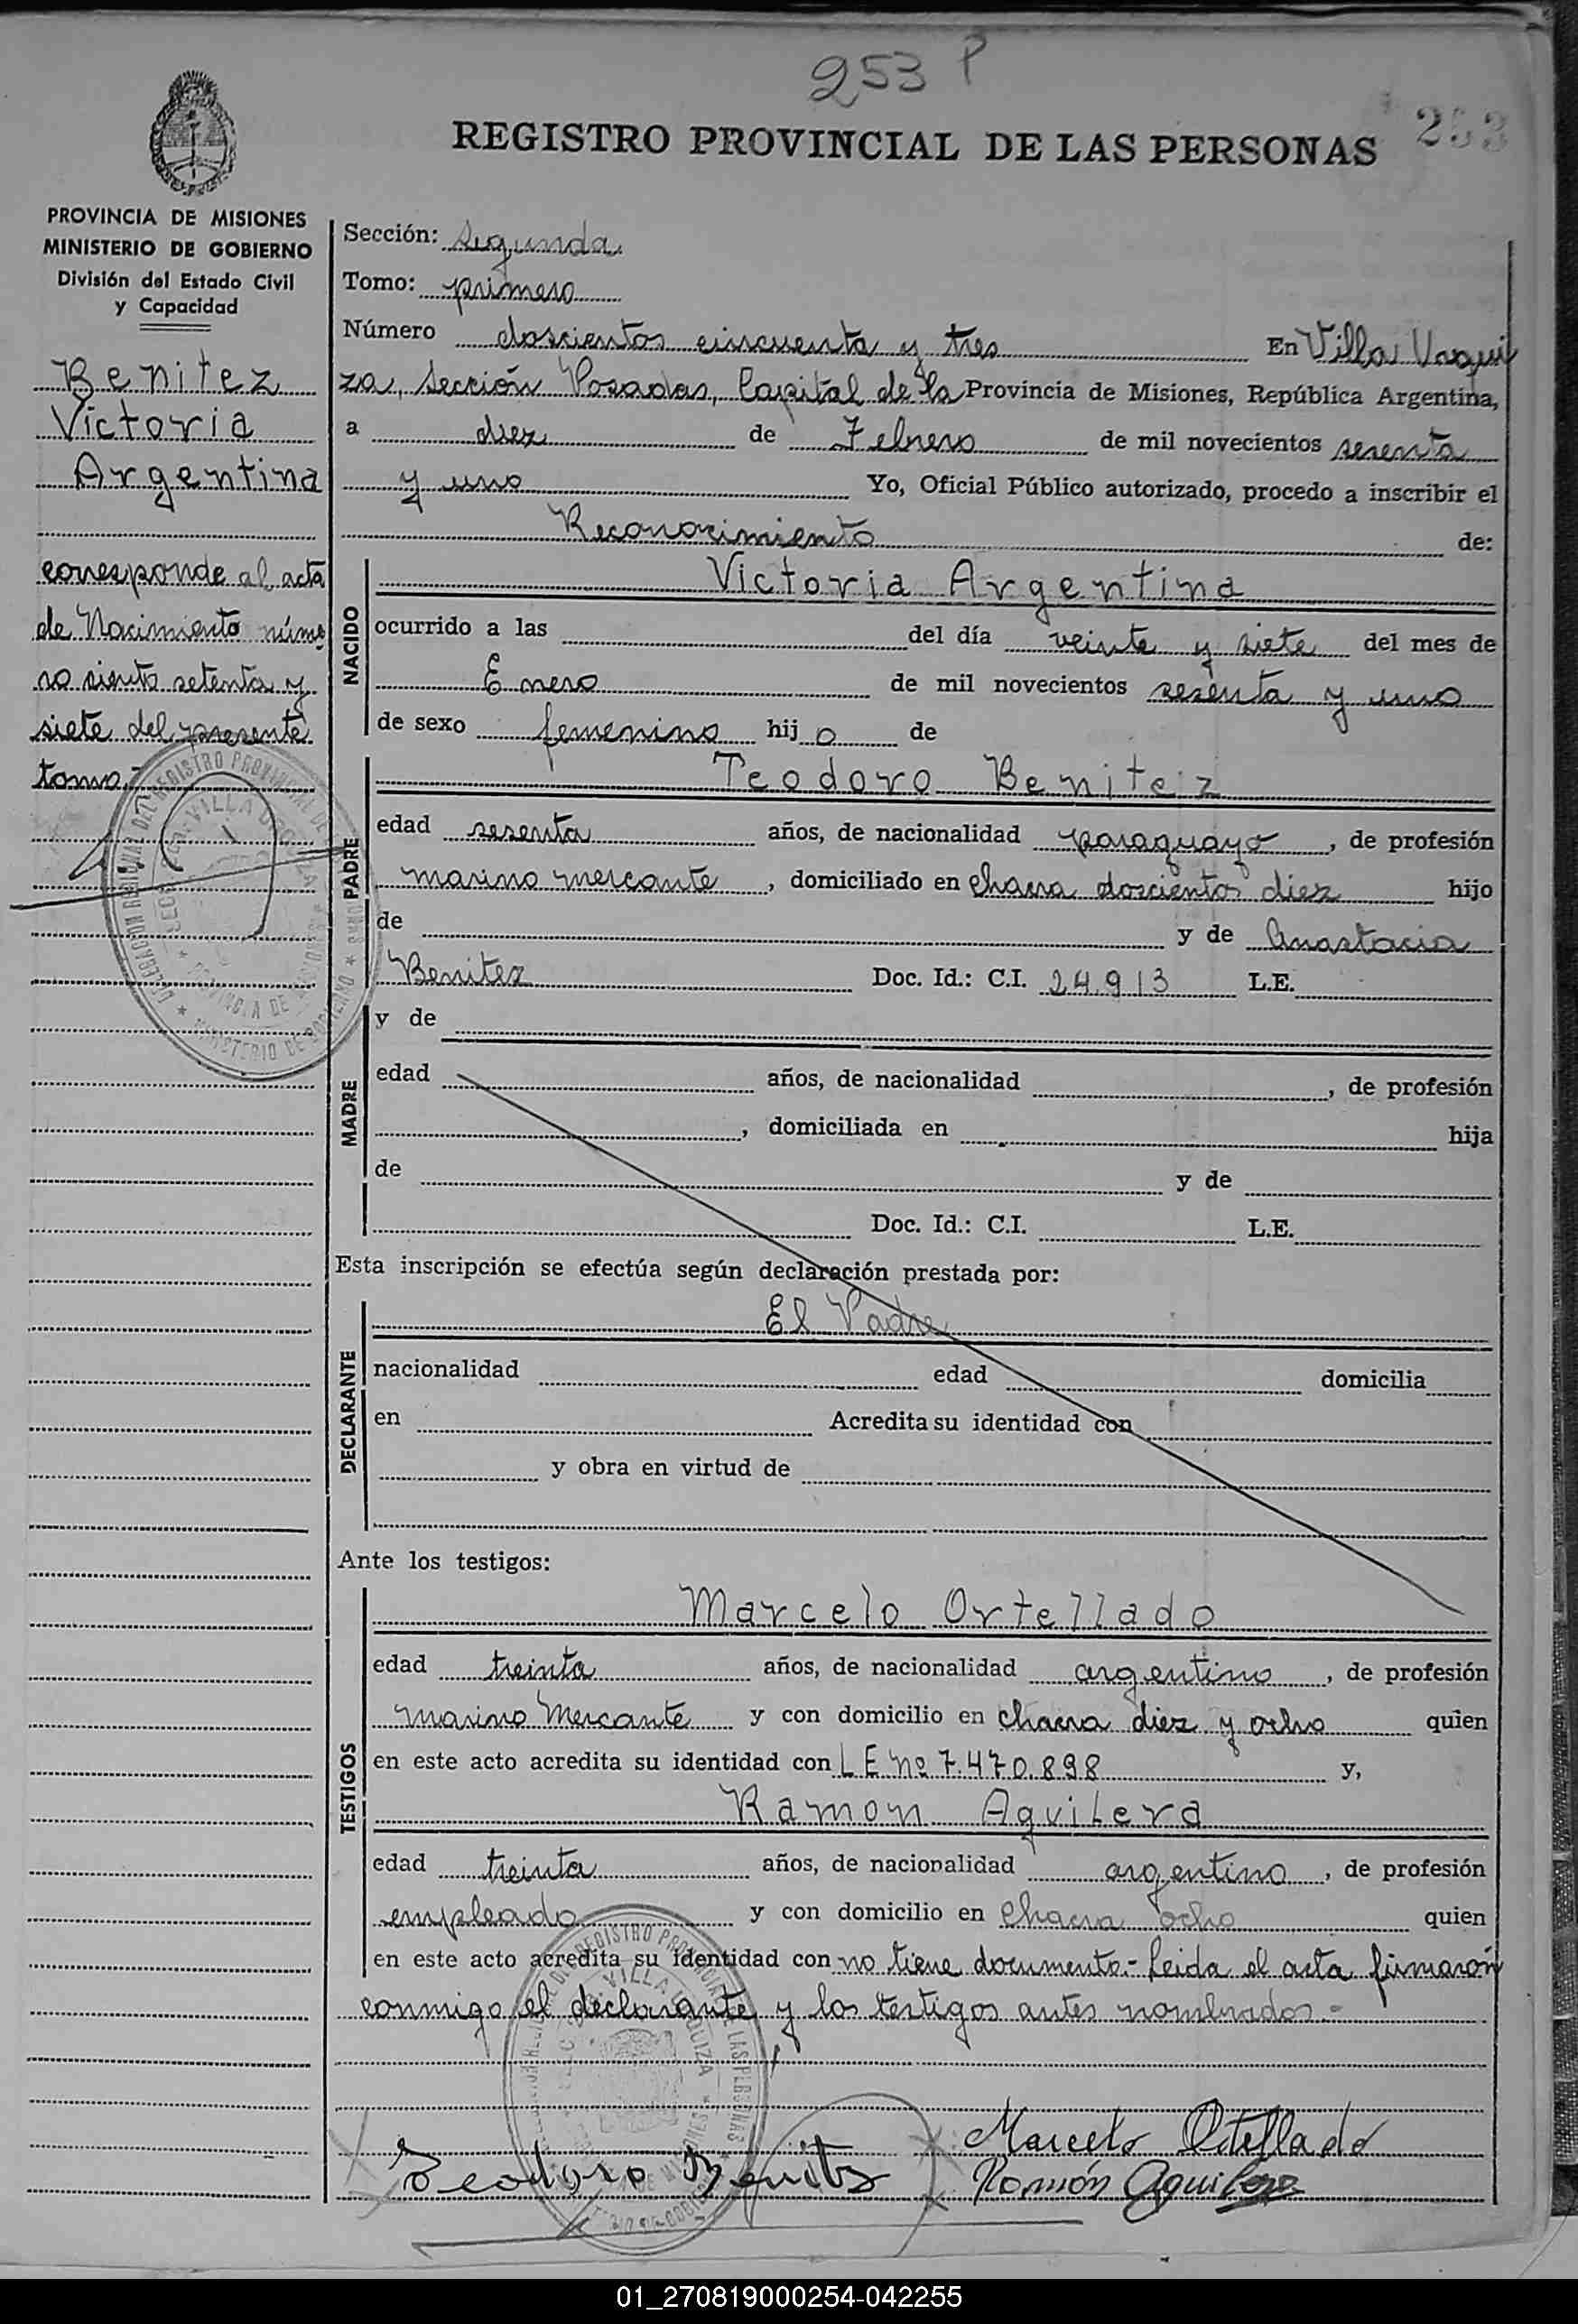 253 P
253
REGISTRO PROVINCIAL DE LAS PERSONAS
PROVINCIA DE MISIONES
MINISTERIO DE GOBIERNO
División del Estado Civil
y Capacidad
Benitez
Victoria
Argentina
corresponde al acta
de Nacimiento núme
ro ciento setenta y
siete del presente
tomo.-
Sección: Segunda
Tomo: primero
Número doscientos cincuenta y tres En Villa Urqui
za, Sección Posadas, Capital de la Provincia de Misiones, República Argentina,
a diez de Febrero de mil novecientos sesenta
y uno Yo, Oficial Público autorizado, procedo a inscribir el
Reconocimiento de:
NACIDO
Victoria Argentina
ocurrido a las del día veinte y siete del mes de
Enero de mil novecientos sesenta y uno
de sexo femenino hij o de
PADRE
Teodoro Benitez
edad sesenta años, de nacionalidad paraguayo, de profesión
marino mercante, domiciliado en chacra doscientos diez hijo
de y de Anastacia
Benitez Doc. Id.: C.I. 24913 L.E.
MADRE
y de
edad años, de nacionalidad , de profesión
, domiciliada en hija
de y de
Doc. Id.: C.I. L.E.
Esta inscripción se efectúa según declaración prestada por:
DECLARANTE
El Padre
nacionalidad edad domicilia
en Acredita su identidad con
y obra en virtud de
Ante los testigos:
TESTIGOS
Marcelo Ortellado
edad treinta años, de nacionalidad argentino, de profesión
marino Mercante y con domicilio en chacra diez y ocho quien
en este acto acredita su identidad con L E Nº 7.470.898 y,
Ramon Aguilera
edad treinta años, de nacionalidad argentino, de profesión
empleado y con domicilio en chacra ocho quien
en este acto acredita su identidad con no tiene documento.- Leida el acta firmaron
conmigo el declarante y los testigos antes nombrados.-
Marcelo Ortellado
Teodoro Benitez
Ramón Aguilera
01_270819000254-042255